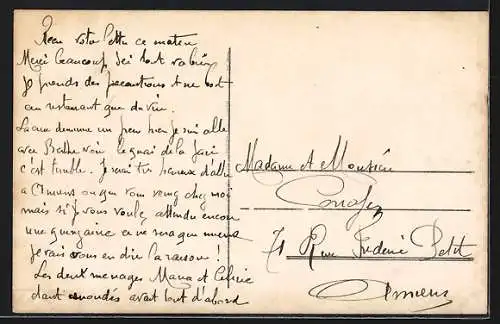 Reçu votre lettre ce matin
Merci beaucoup, ici tout va bien
Je prends des precautions et ne bois
au restaurant que du vin.
un peu hier je suis allé
avec Berthe voir le quai de la
c'est terrible. Je serai très heureux d'aller
a Amiens ou que vous veniez chez moi
mais si je vous voulez attendre encore
une quinzaine ce ne sera que mieux
Je vais vous en dire la raison !
Les deux menages Mana et
avant tout d'abord
Madame et Monsieur
71 Rue Frédéric Petit
Amiens